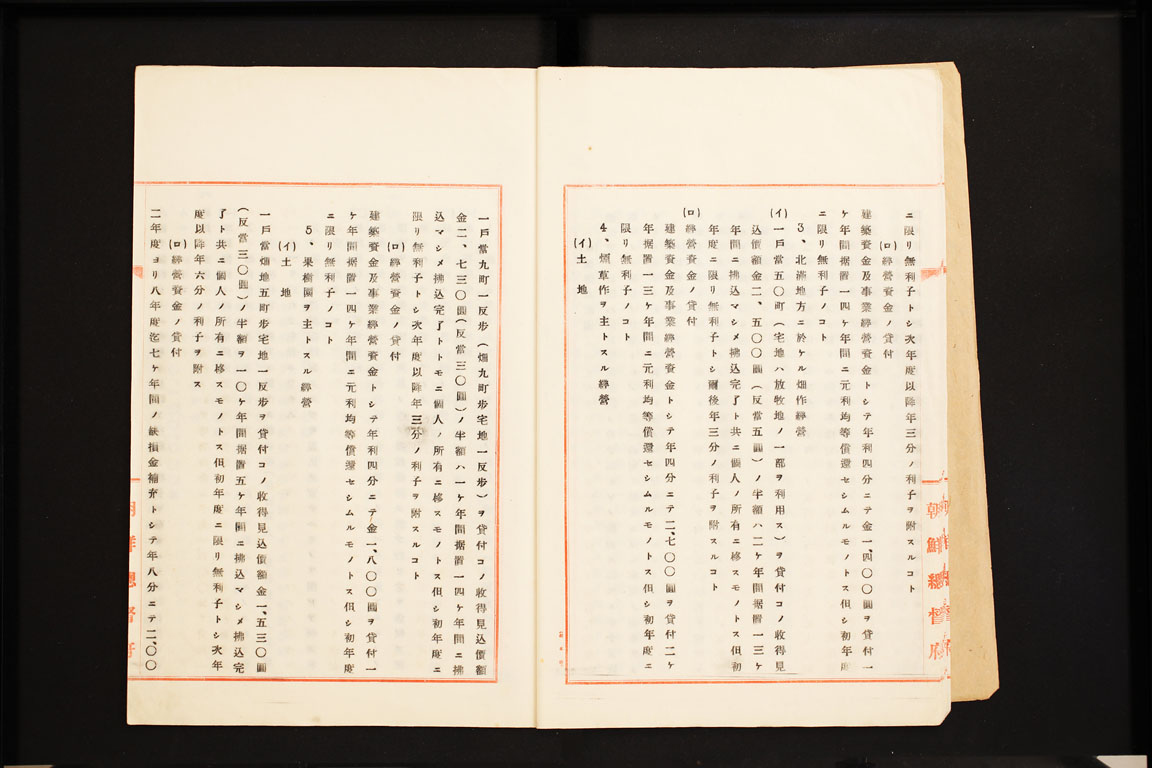 ニ限リ無利子トシ次年度以降年三分ノ利子ヲ附スルコト
(ロ)經營資金ノ貸付
建築資金及事業經營資金トシテ年利四分ニテ金一、四〇〇圓ヲ貸付一
ケ年間据置一四ケ年間ニ元利均等償還セシムルモノトス但シ初年度
ニ限リ無利子ノコト
3、北滿地方ニ於ケル畑作經營
(イ)一戶當五〇町(宅地ハ放牧地ノ一部ヲ利用ス)ヲ貸付コノ收得見
込價額金二、五〇〇圓(反當五圓)ノ半額ハ二ケ年間据置一三ケ
年間ニ拂込マシメ拂込完了ト共ニ個人ノ所有ニ移スモノトス但初
年度ニ限リ無利子トシ爾後年三分ノ利子ヲ附スルコト
(ロ)經營資金ノ貸付
建築資金及事業經營資金トシテ年四分ニテ二、七〇〇圓ヲ貸付二ケ
年据置一三ケ年間ニ元利均等償還セシムルモノトス但シ初年度ニ
限リ無利子ノコト
4、煙草作ヲ主トスル經營
(イ)土地
朝鮮總督府
一戶當九町一反步(畑九町步宅地一反步)ヲ貸付コノ收得見込價額
金二、七三〇圓(反當三〇圓)ノ半額ハ一ケ年間据置一四ケ年間ニ拂
込マシメ拂込完了トトモニ個人ノ所有ニ移スモノトス但シ初年度ニ
限リ無利子トシ次年度以降年三分ノ利子ヲ附スルコト
(ロ)經營資金ノ貸付
建築資金及事業經營資金トシテ年利四分ニテ金一、八〇〇圓ヲ貸付一
ケ年間据置一四ケ年間ニ元利均等償還セシムルモノトス但シ初年度
ニ限リ無利子ノコト
5、果樹園ヲ主トスル經營
(イ)土地
一戶當畑地五町步宅地一反步ヲ貸付コノ收得見込價額金一、五三〇圓
(反當三〇圓)ノ半額ヲ一〇ケ年間据置五ケ年間ニ拂込マシメ拂込完
了ト共ニ個人ノ所有ニ移スモノトス但初年度ニ限リ無利子トシ次年
度以降年六分ノ利子ヲ附ス
(ロ)經營資金ノ貸付
二年度ヨリ八年度迄七ケ年間ノ缺損金補塡トシテ年八分ニテ二、〇〇